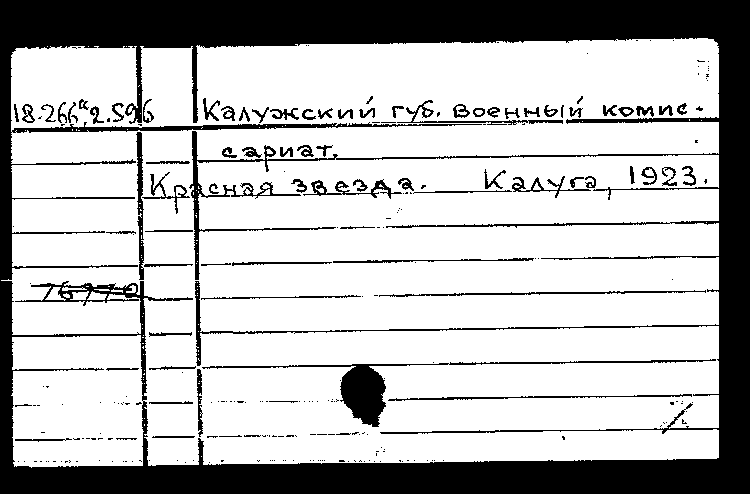 18.266к.2.596 Калужский губ. Военный комис-
сариат.
Красная звезда. Калуга, 1923.
76770